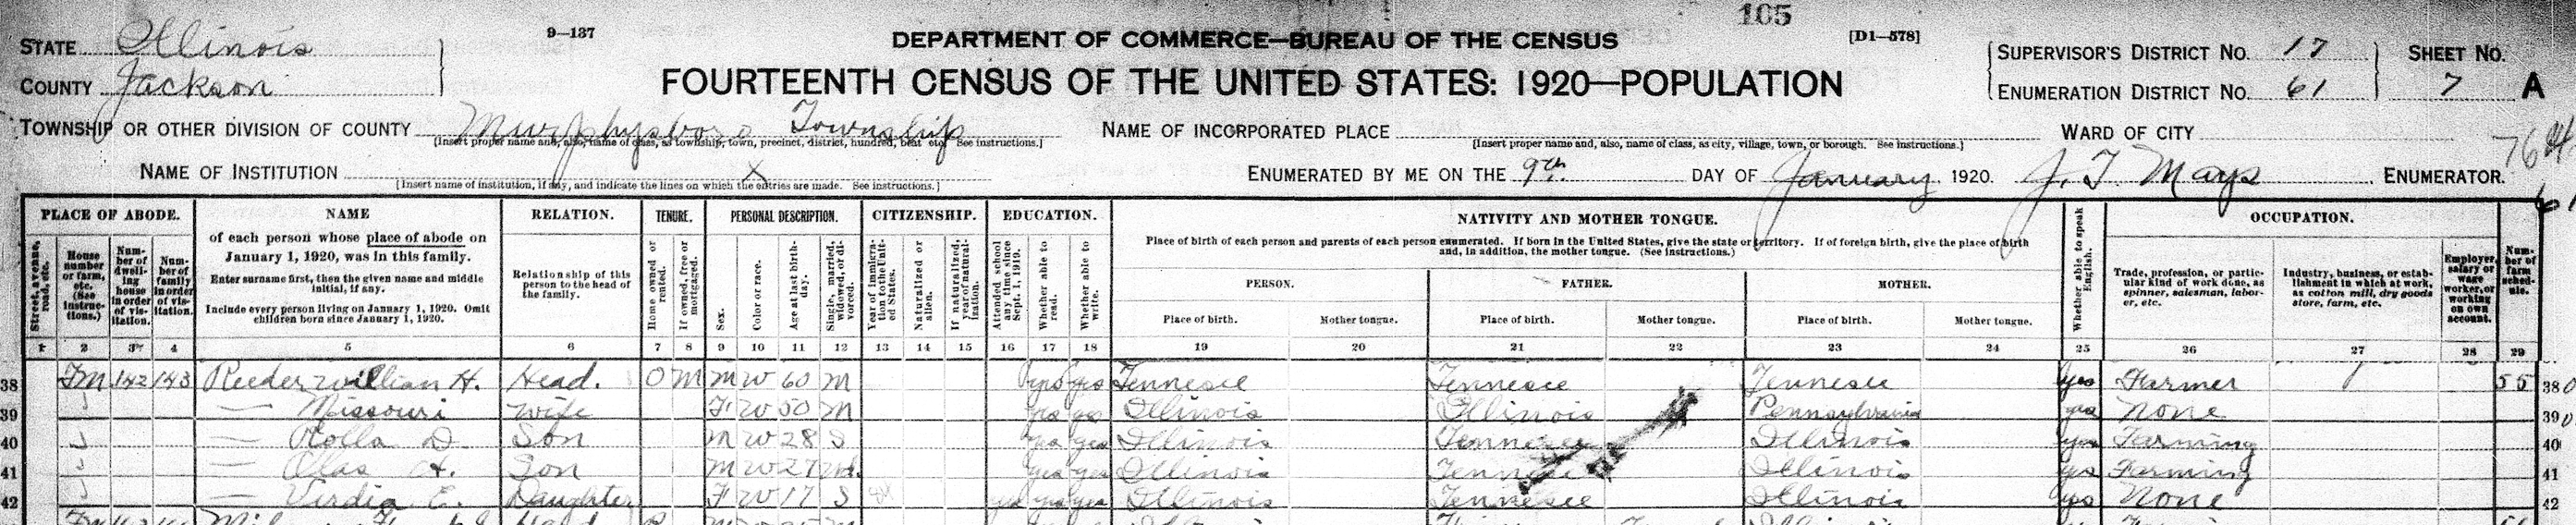 105
STATE Illinois 9—137 DEPARTMENT OF COMMERCE—BUREAU OF THE CENSUS [D1—578] SUPERVISOR'S DISTRICT NO. 17 SHEET NO.
COUNTY Jackson FOURTEENTH CENSUS OF THE UNITED STATES: 1920—POPULATION ENUMERATION DISTRICT NO. 61 7 A
TOWNSHIP OR OTHER DIVISION OF COUNTY Murphysboro Township NAME OF INCORPORATED PLACE WARD OF CITY
[Insert proper name and, also, name of class, as township, town, precinct, district, hundred, beat etc. See instructions.] [Insert proper name and, also, name of class, as city, village, town, or borough. See instructions.]
NAME OF INSTITUTION X ENUMERATED BY ME ON THE 9th DAY OF January, 1920. J. T. Mays, ENUMERATOR.
[Insert name of institution, if any, and indicate the lines on which the entries are made. See instructions.]
PLACE OF ABODE. NAME RELATION. TENURE. PERSONAL DESCRIPTION. CITIZENSHIP. EDUCATION. NATIVITY AND MOTHER TONGUE. OCCUPATION.
Street, avenue, road, etc.
House number or farm, etc. (See instructions.)
Number of dwelling house in order of visitation.
Number of family in order of visitation.
of each person whose place of abode on
January 1, 1920, was in this family.
Enter surname first, then the given name and middle
initial, if any.
Include every person living on January 1, 1920. Omit
children born since January 1, 1920.
Relationship of this
person to the head of
the family.
Home owned or rented.
If owned, free or mortgaged.
Sex.
Color or race.
Age at last birthday.
Single, married, widowed, or divorced.
Year of immigration to the United States.
Naturalized or alien.
If naturalized, year of naturalization.
Attended school any time since Sept. 1, 1919.
Whether able to read.
Whether able to write.
Place of birth of each person and parents of each person enumerated. If born in the United States, give the state or territory. If of foreign birth, give the place of birth
and, in addition, the mother tongue. (See instructions.)
PERSON. FATHER. MOTHER.
Place of birth. Mother tongue. Place of birth. Mother tongue. Place of birth. Mother tongue.
Whether able to speak English.
Trade, profession, or particular kind of work done, as spinner, salesman, laborer, etc.
Industry, business, or establishment in which at work, as cotton mill, dry goods store, farm, etc.
Employer, salary or wage worker, or working on own account.
Number of farm schedule.
1 2 3 4 5 6 7 8 9 10 11 12 13 14 15 16 17 18 19 20 21 22 23 24 25 26 27 28 29
38 Fm 142 143 Reeder William H. Head. O M M W 60 M yes yes Tennesee Tennesee Tennesee yes Farmer 55 38
39 — Missouri Wife F W 50 M yes yes Illinois Illinois Pennsylvania yes None 39
40 — Rolla D Son M W 28 S yes yes Illinois Tennesee Illinois yes Farming 40
41 — H. Son M W 27 yes yes Illinois Tennesee Illinois yes Farming 41
42 — Verdia E. Daughter F W 17 S yes yes yes Illinois Tennesee Illinois yes None 42